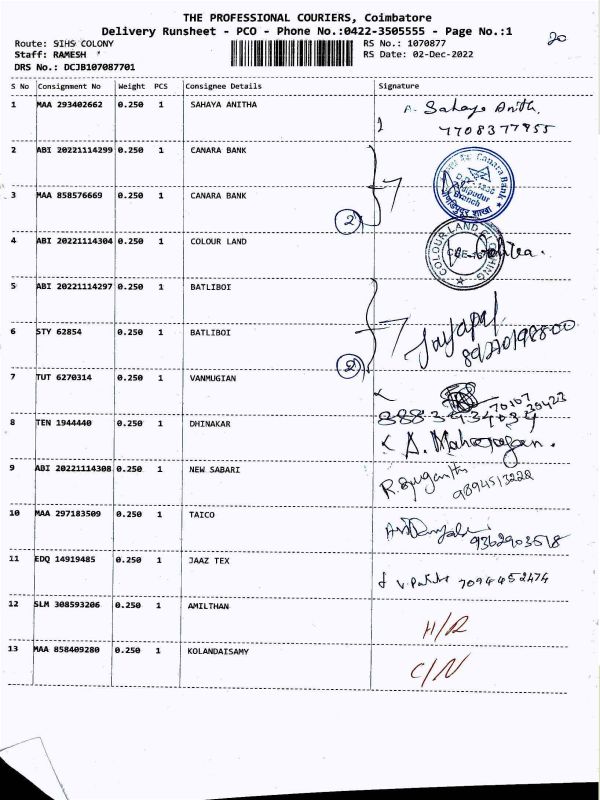 THE PROFESSIONAL COURIERS, Coimbatore
Delivery Runsheet - PCO - Phone No.:0422-3505555 - Page No.:1
20
Route: SIHS COLONY
RS No.: 1070877
Staff: RAMESH
RS Date: 02-Dec-2022
DRS No.: DCJB107087701
S No Consignment No Weight PCS Consignee Details Signature
1 MAA 293402662 0.250 1 SAHAYA ANITHA A. Sahaya Anith.
7708377955
2 ABI 20221114299 0.250 1 CANARA BANK
Canara Bank
Branch
शाखा
3 MAA 858576669 0.250 1 CANARA BANK
2
4 ABI 20221114304 0.250 1 COLOUR LAND
COLOUR LAND CLOTHING
5 ABI 20221114297 0.250 1 BATLIBOI
Jayapal
6 STY 62854 0.250 1 BATLIBOI
2
7 TUT 6270314 0.250 1 VANMUGIAN
8 TEN 1944440 0.250 1 DHINAKAR
9 ABI 20221114308 0.250 1 NEW SABARI
9894513228
10 MAA 297183509 0.250 1 TAICO
9362903518
11 EDQ 14919485 0.250 1 JAAZ TEX
7094452474
12 SLM 308593206 0.250 1 AMILTHAN H/R
13 MAA 858409280 0.250 1 KOLANDAISAMY C/N